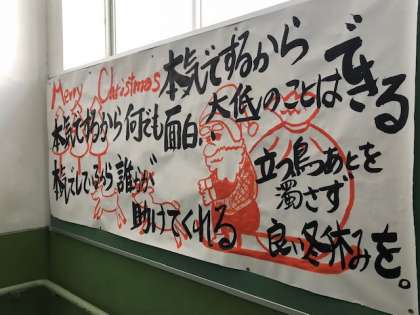 Merry Christmas
本気でするから
大低のことはできる
本気でするから何でも面白い
本気でしているから誰かが
助けてくれる
立つ鳥あとを
濁さず
良い冬休みを。